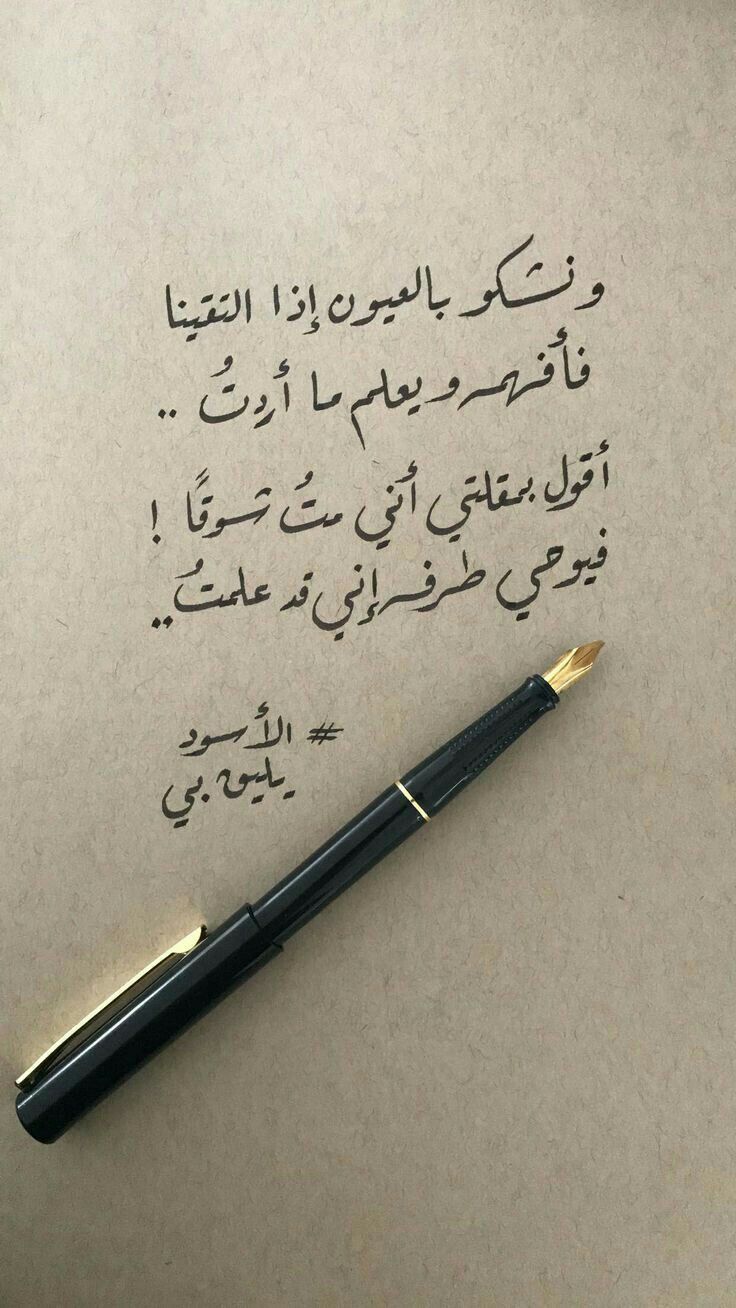 ونشكو بالعيون إذا التقينا
فأفهمه ويعلم ما أردتُ ..
أقول بمقلتي أني متُ شوقًا !
فيوحي طرفه إني قد علمتُ ..
# الأسود
يليق بي